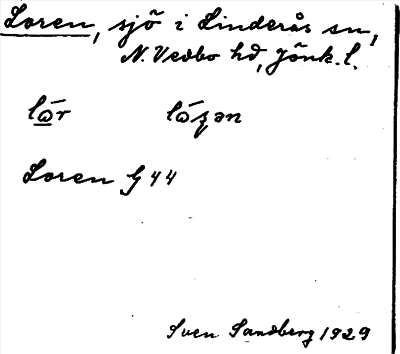 Loren, sjö i Linderås sn,
N. Vedbo hd, Jönk. l.
Loren G 44
Sven Sandberg 1929